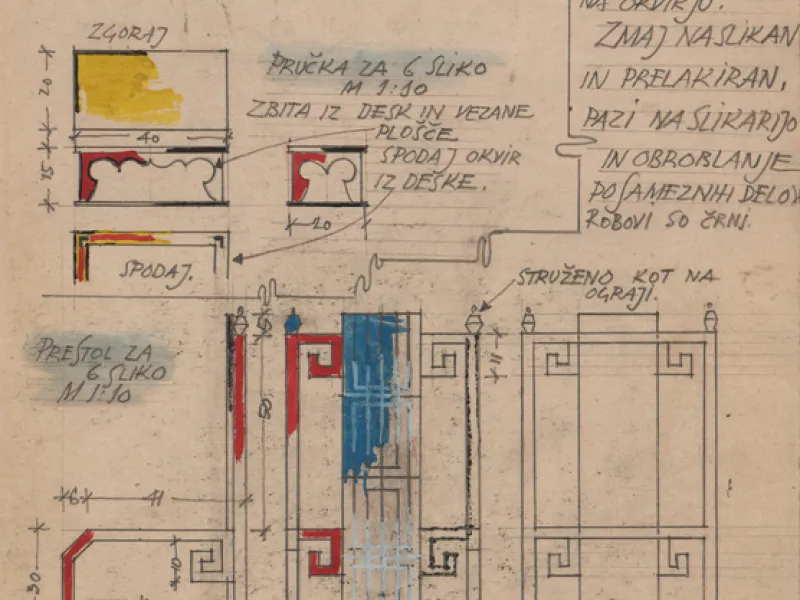 NA OKVIRJU.
ZMAJ NASLIKAN
IN PRELAKIRAN,
PAZI NA SLIKARIJO
IN OBROBLANJE
POSAMEZNIH DELOV
ROBOVI SO ČRNI.
ZGORAJ
PRUČKA ZA 6 SLIKO
M 1:10
ZBITA IZ DESK IN VEZANE
PLOŠČE
SPODAJ OKVIR
IZ DEŠKE.
20
40
15
20
SPODAJ.
STRUŽENO KOT NA
OGRAJI.
PRESTOL ZA
6 SLIKO
M 1:10
15
11
50
6
41
10
30